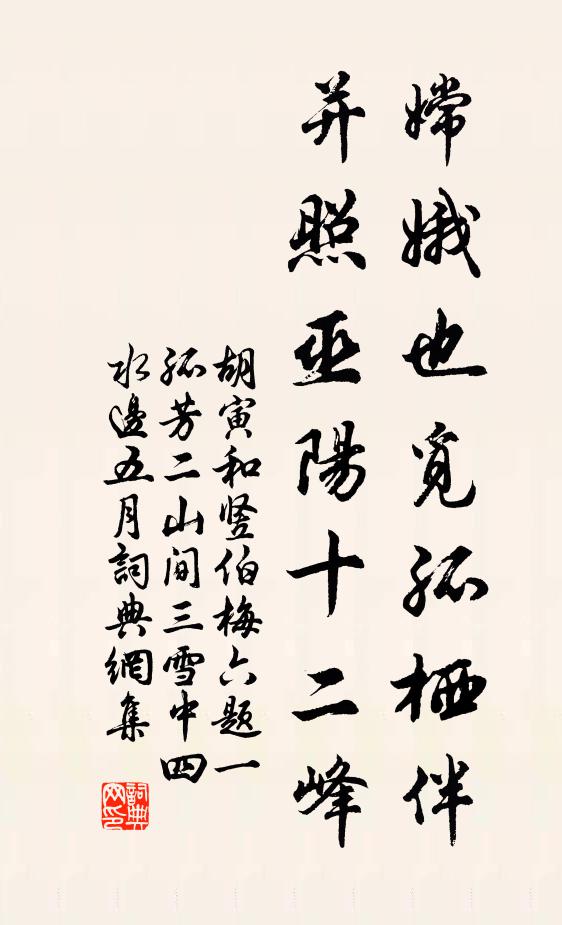 嫦娥也覓孤栖伴
并照巫陽十二峰
胡寅和竖伯梅六题一
孤芳二山间三雪中四
水邊五月詞典網集
詞典網印